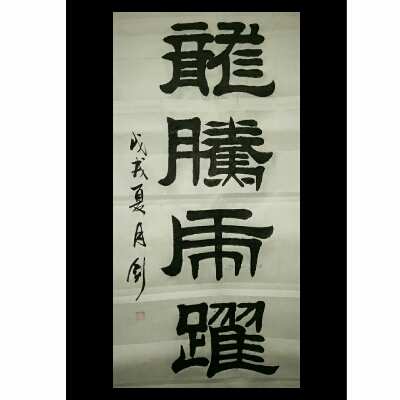 龍騰虎躍
戊戌夏月劍